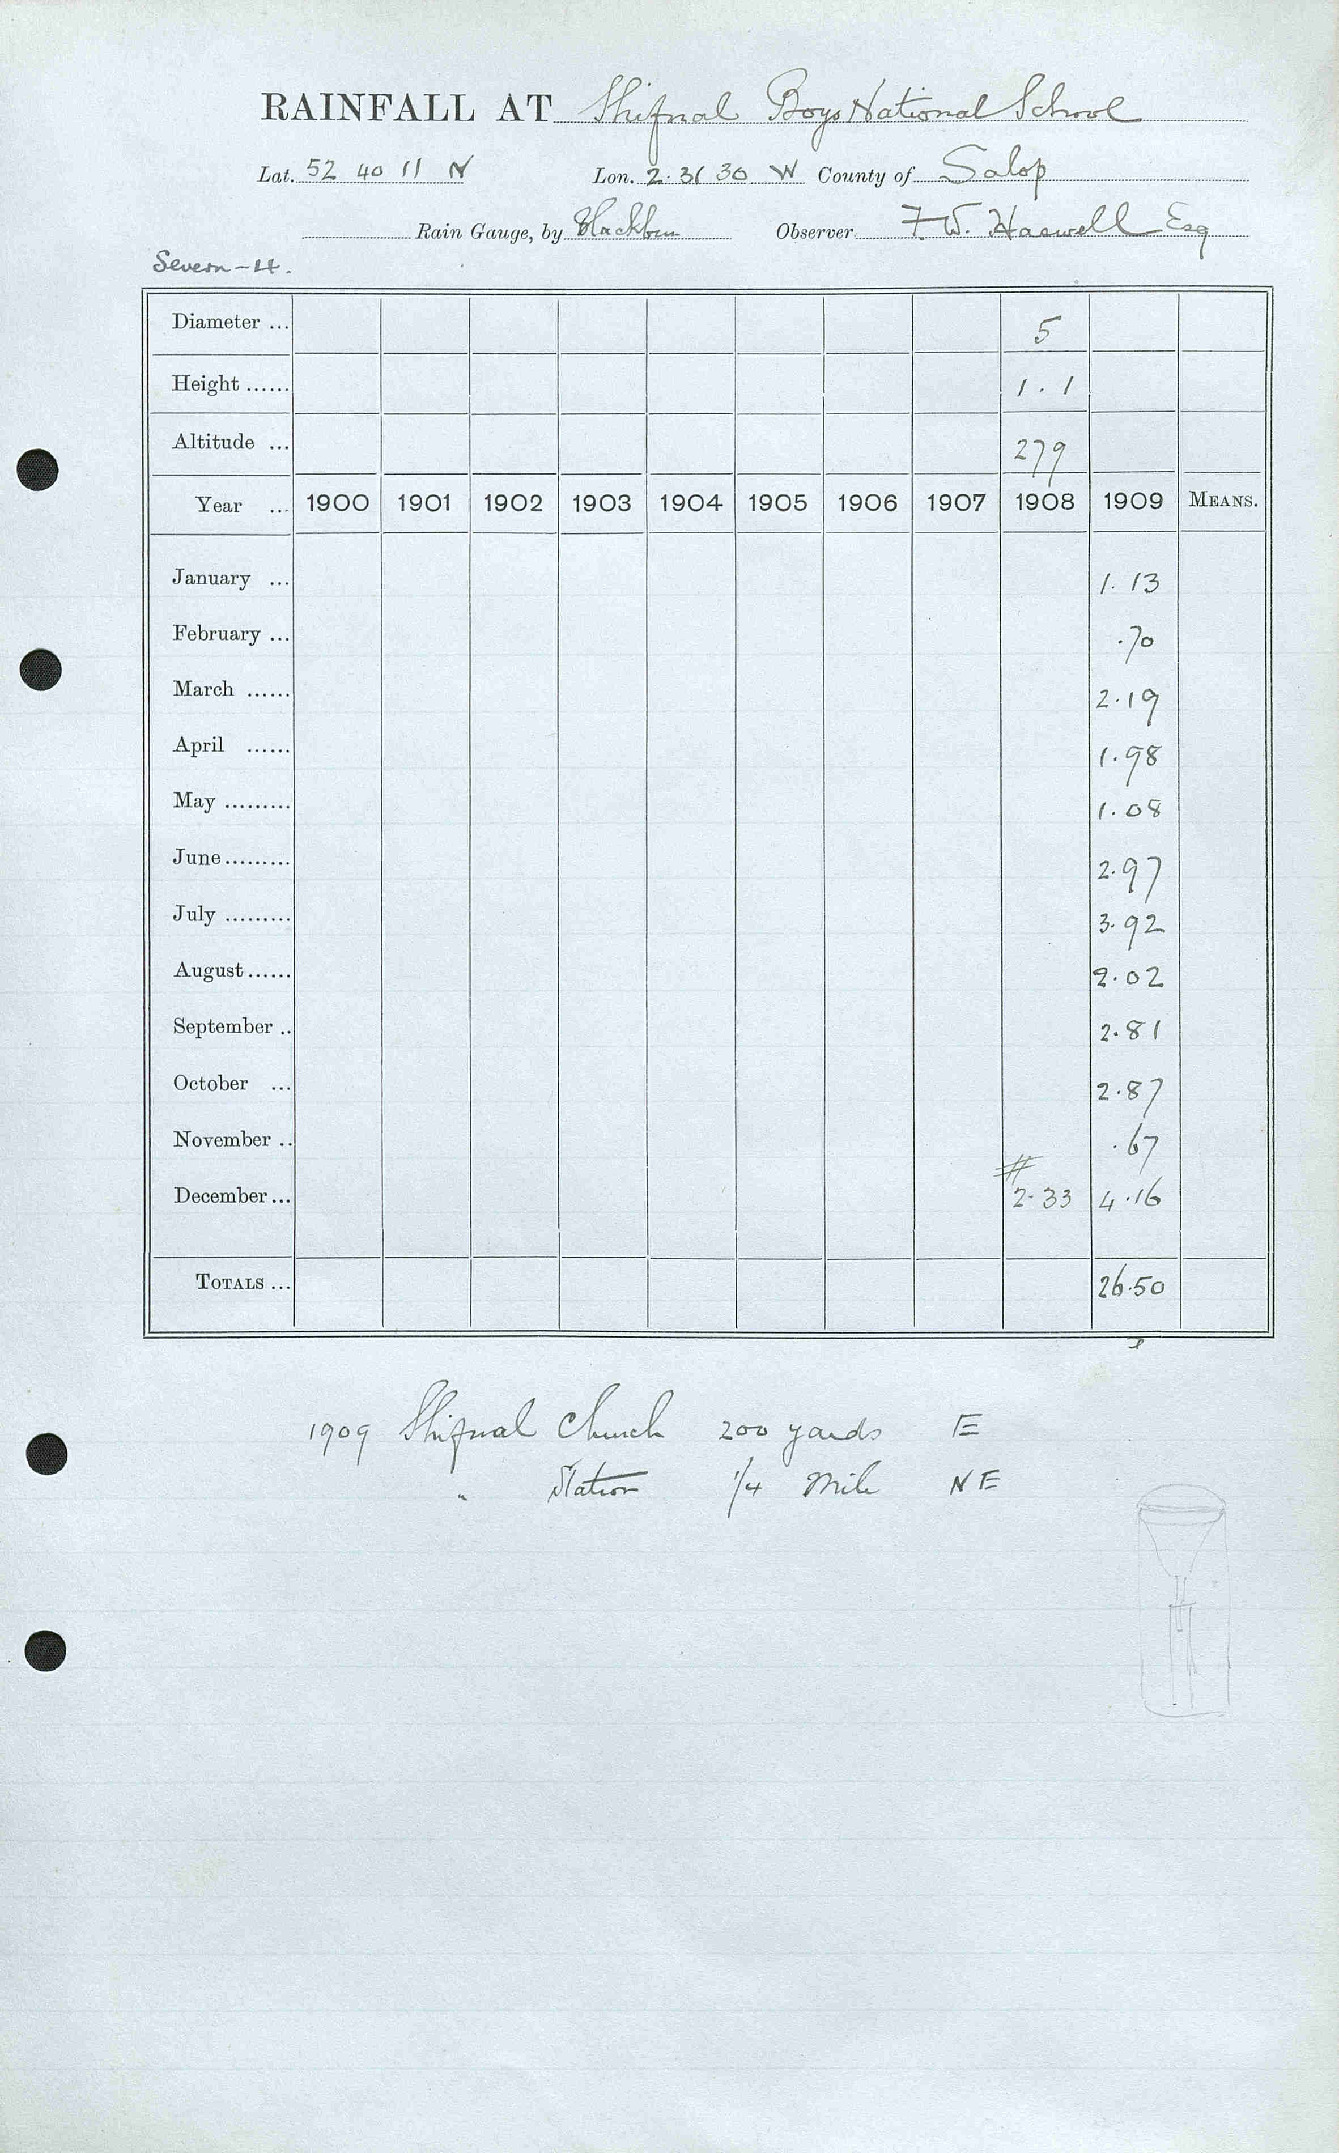 RAINFALL AT Shifnal Boys National School
Lat. 52 40 11 N Lon. 2. 31 30 W County of Salop
Rain Gauge, by Blackburn Observer F. W. Haswell Esq
Severn - 4.
Diameter ... 5
Height ...... 1 . 1
Altitude ... 279
Year ... 1900 1901 1902 1903 1904 1905 1906 1907 1908 1909 MEANS.
January ... 1. 13
February ... .70
March ...... 2.19
April ...... 1.98
May ......... 1.08
June......... 2.97
July ......... 3.92
August...... 2.02
September .. 2.81
October ... 2.87
November .. .67
December... # 2.33 4.16
TOTALS ... 26.50
1909 Shifnal Church 200 yards E
" Station 1/4 Mile NE